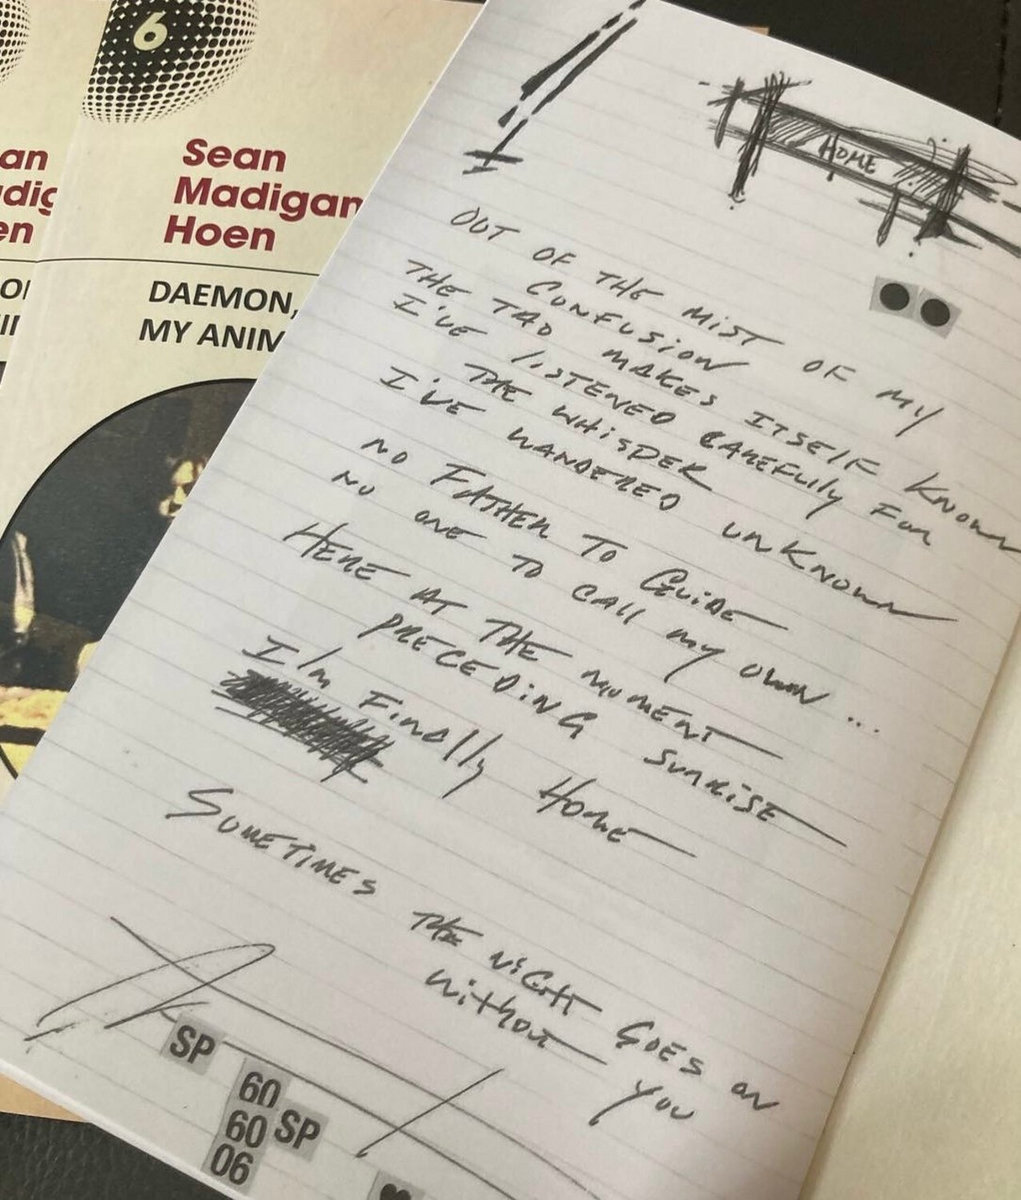 6
Sean
Madigan
Hoen
DAEMON,
MY ANIM
an
en
HOME
OUT OF THE MIST OF MY
CONFUSION
THE TAO MAKES ITSELF KNOWN
I'VE LISTENED CAREFULLY FOR
THE WHISPER
I'VE WANDERED UNKNOWN
NO FATHER TO GUIDE
NO ONE TO CALL MY OWN...
HERE AT THE MOMENT
PRECEDING SUNRISE
I'm FINALLY HOME
SOMETIMES THE NIGHT GOES ON
WITHOUT YOU
SP
60
60 SP
06